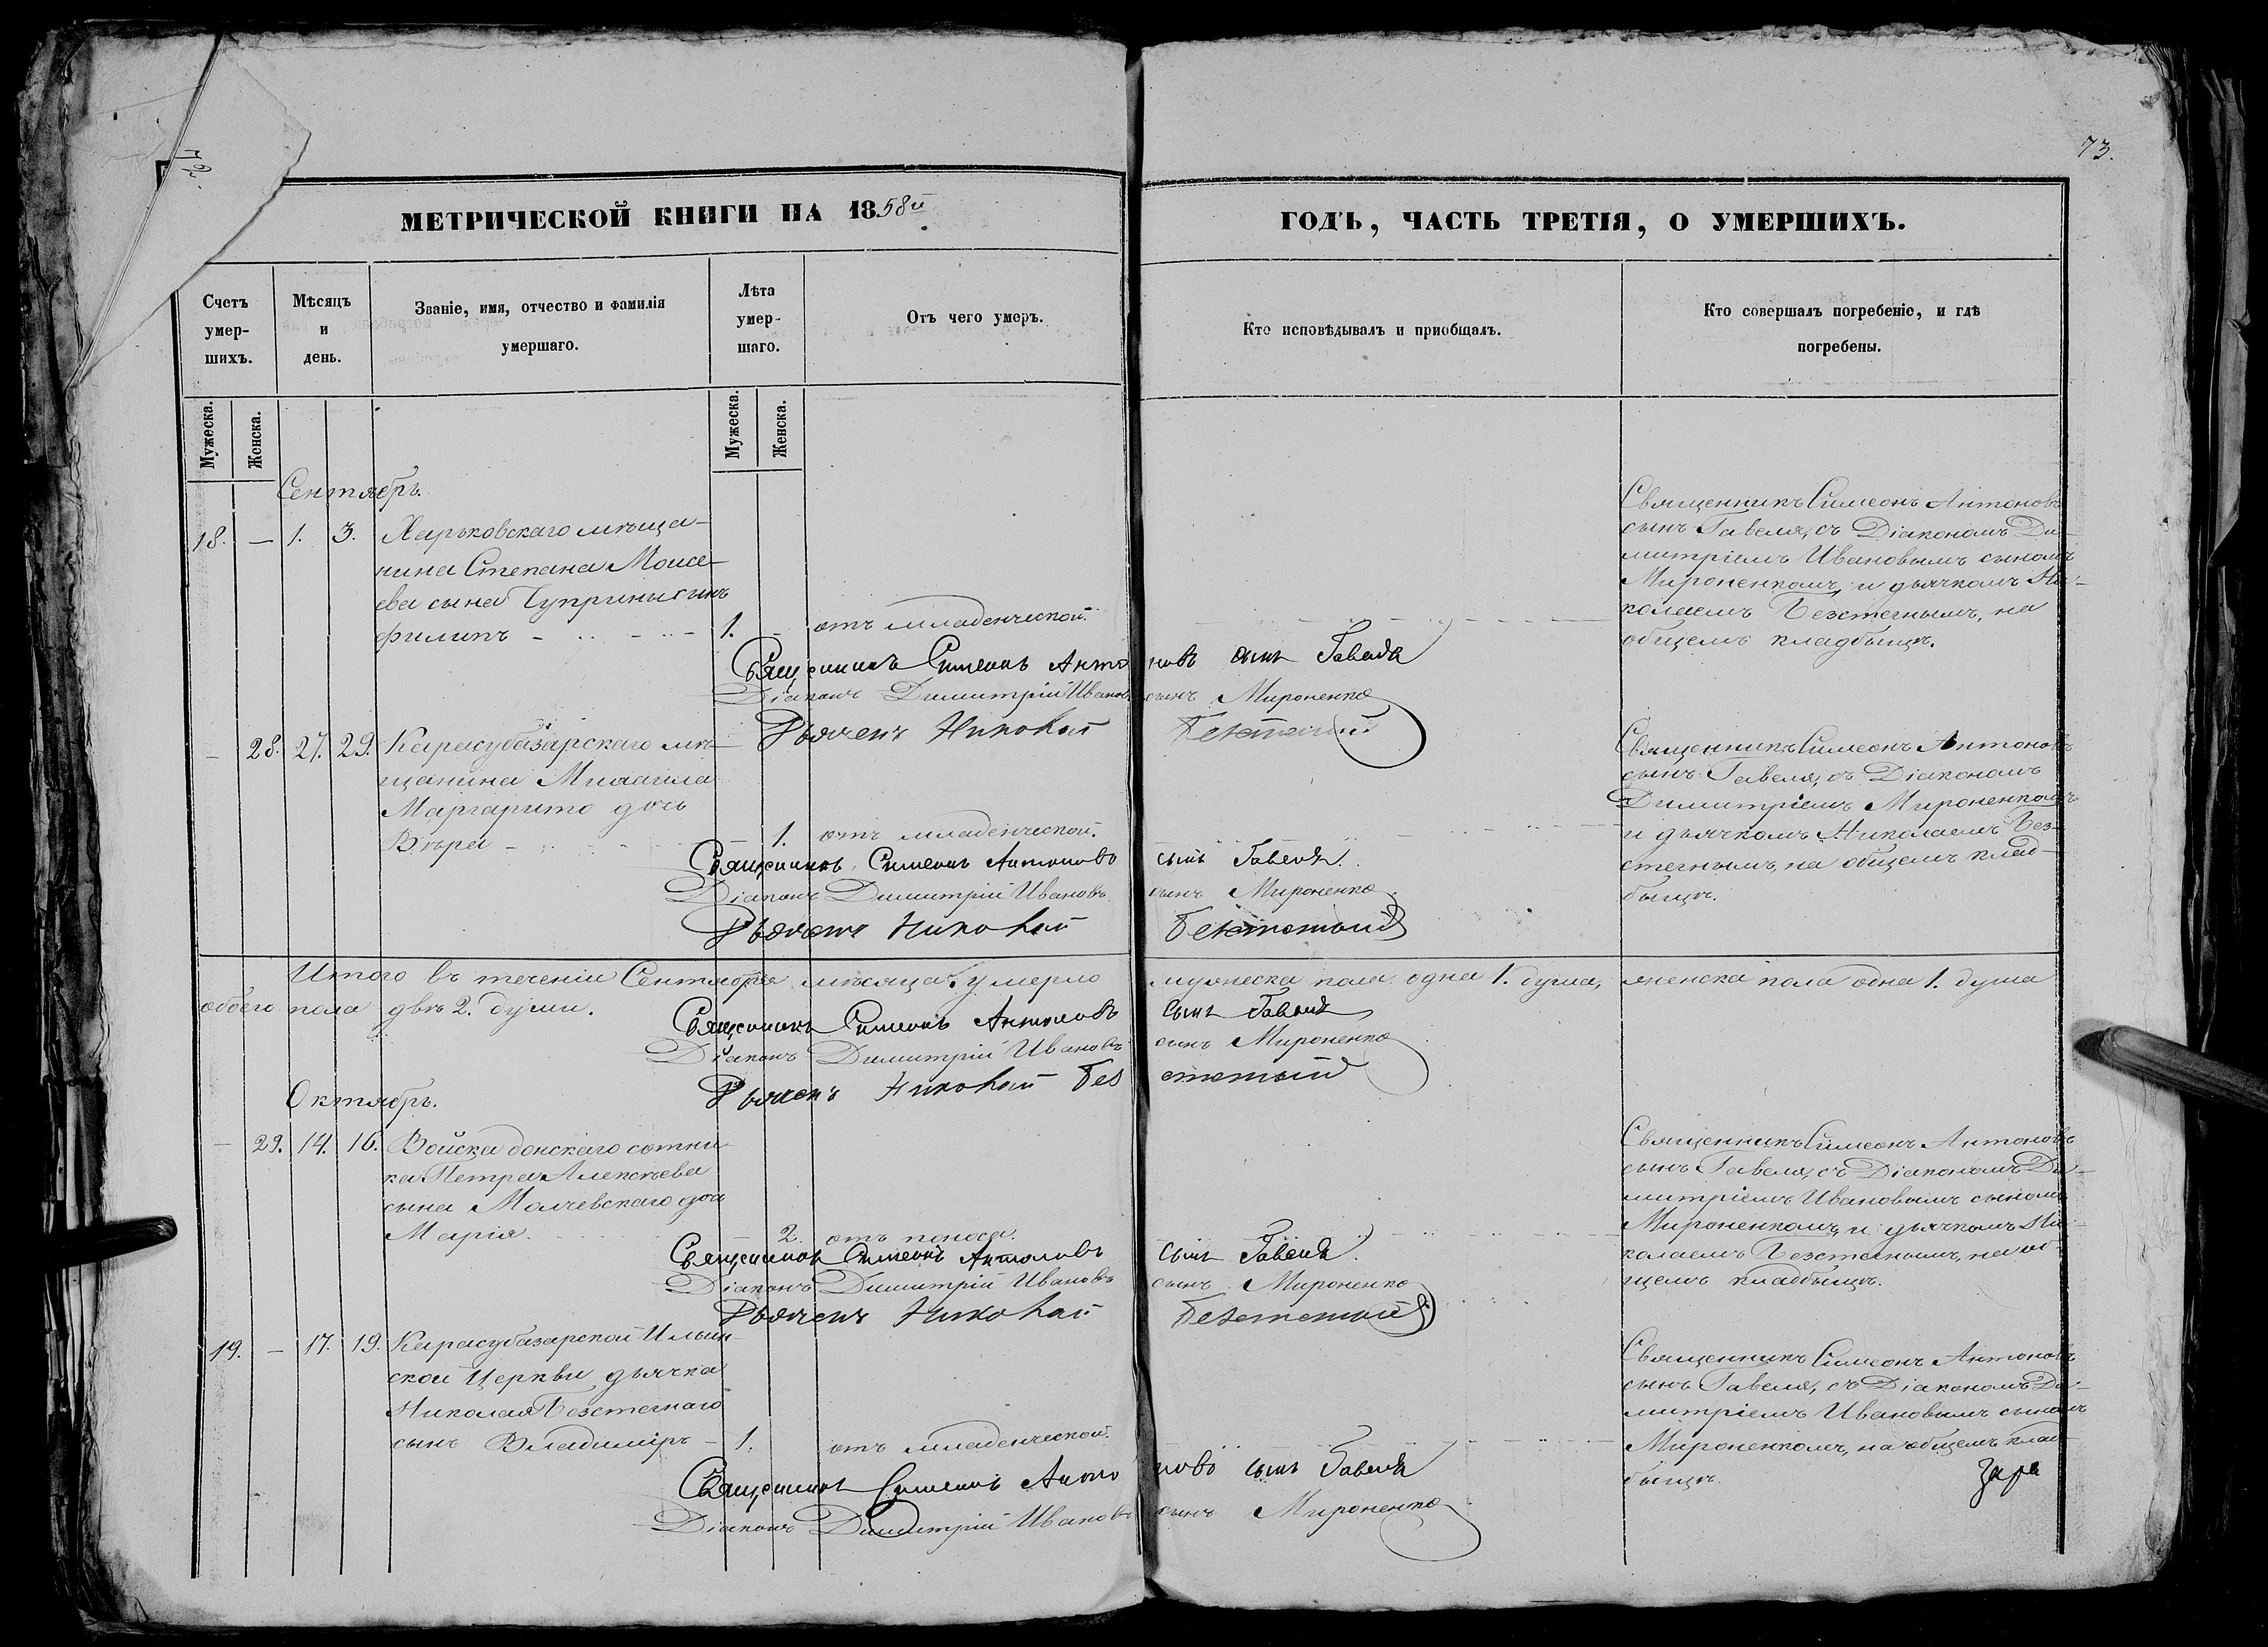 73.
МЕТРИЧЕСКОЙ КНИГИ НА 1858й
ГОДЪ, ЧАСТЬ ТРЕТІЯ, О УМЕРШИХЪ.
Счетъ умер-шихъ.
Мѣсяцъ и день.
Званіе, имя, отчество и фамилія умершаго.
Лѣта умер-шаго.
Отъ чего умеръ.
Кто исповѣдывалъ и пріобщалъ.
Кто совершалъ погребеніе, и гдѣ погребены.
Мужеска. Женска.
Мужеска. Женска.
Сентябрь.
18. — 1. 3. Харьковскаго мѣща-
нина Степана Моисе-
ева сына Чуприны сынъ
Филипъ — 1. — отъ младенческой.
Священникъ Симеонъ Антоновъ
сынъ Гавеля, съ Діакономъ Ди-
митріемъ Ивановымъ сыномъ
Мироненкомъ, и дьячкомъ Ни-
колаемъ Безстегнымъ, на
общемъ кладбищѣ.
Священникъ Симеонъ Антоновъ сынъ Гавеля
Діаконъ Димитрій Ивановъ сынъ Мироненко
Дьячекъ Николай Безстегный
— 28. 27. 29. Карасубазарскаго мѣ-
щанина Михаила
Маргарито дочь
Вѣра — 1. отъ младенческой.
Священникъ Симеонъ Антоновъ
сынъ Гавеля, съ Діакономъ
Димитріемъ Мироненкомъ
и дьячкомъ Николаемъ Без-
стегнымъ, на общемъ клад-
бищѣ.
Священникъ Симеонъ Антоновъ сынъ Гавеля
Діаконъ Димитрій Ивановъ сынъ Мироненко
Дьячекъ Николай Безстегный
Итого въ теченіи Сентября мѣсяца умерло мужеска пола одна 1. душа, женска пола одна 1. душа
обоего пола двѣ 2. души.
Священникъ Симеонъ Антоновъ сынъ Гавеля
Діаконъ Димитрій Ивановъ сынъ Мироненко
Дьячекъ Николай Безстегный
Октябрь.
— 29. 14. 16. Войска донскаго сотни-
ка Петра Алексѣева
сына Молчевскаго дочь
Марія. 2. отъ поноса.
Священникъ Симеонъ Антоновъ
сынъ Гавеля, съ Діакономъ Ди-
митріемъ Ивановымъ сыномъ
Мироненкомъ, и дьячкомъ Ни-
колаемъ Безстегнымъ, на об-
щемъ кладбищѣ.
Священникъ Симеонъ Антоновъ сынъ Гавеля
Діаконъ Димитрій Ивановъ сынъ Мироненко
Дьячекъ Николай Безстегный
19. — 17. 19. Карасубазарской Ильин-
ской Церкви дьячка
Николая Безстегнаго
сынъ Владиміръ — 1. отъ младенческой.
Священникъ Симеонъ Антоновъ
сынъ Гавеля, съ Діакономъ Ди-
митріемъ Ивановымъ сыномъ
Мироненкомъ, на общемъ клад-
бищѣ.
Священникъ Симеонъ Антоновъ сынъ Гавеля
Діаконъ Димитрій Ивановъ сынъ Мироненко